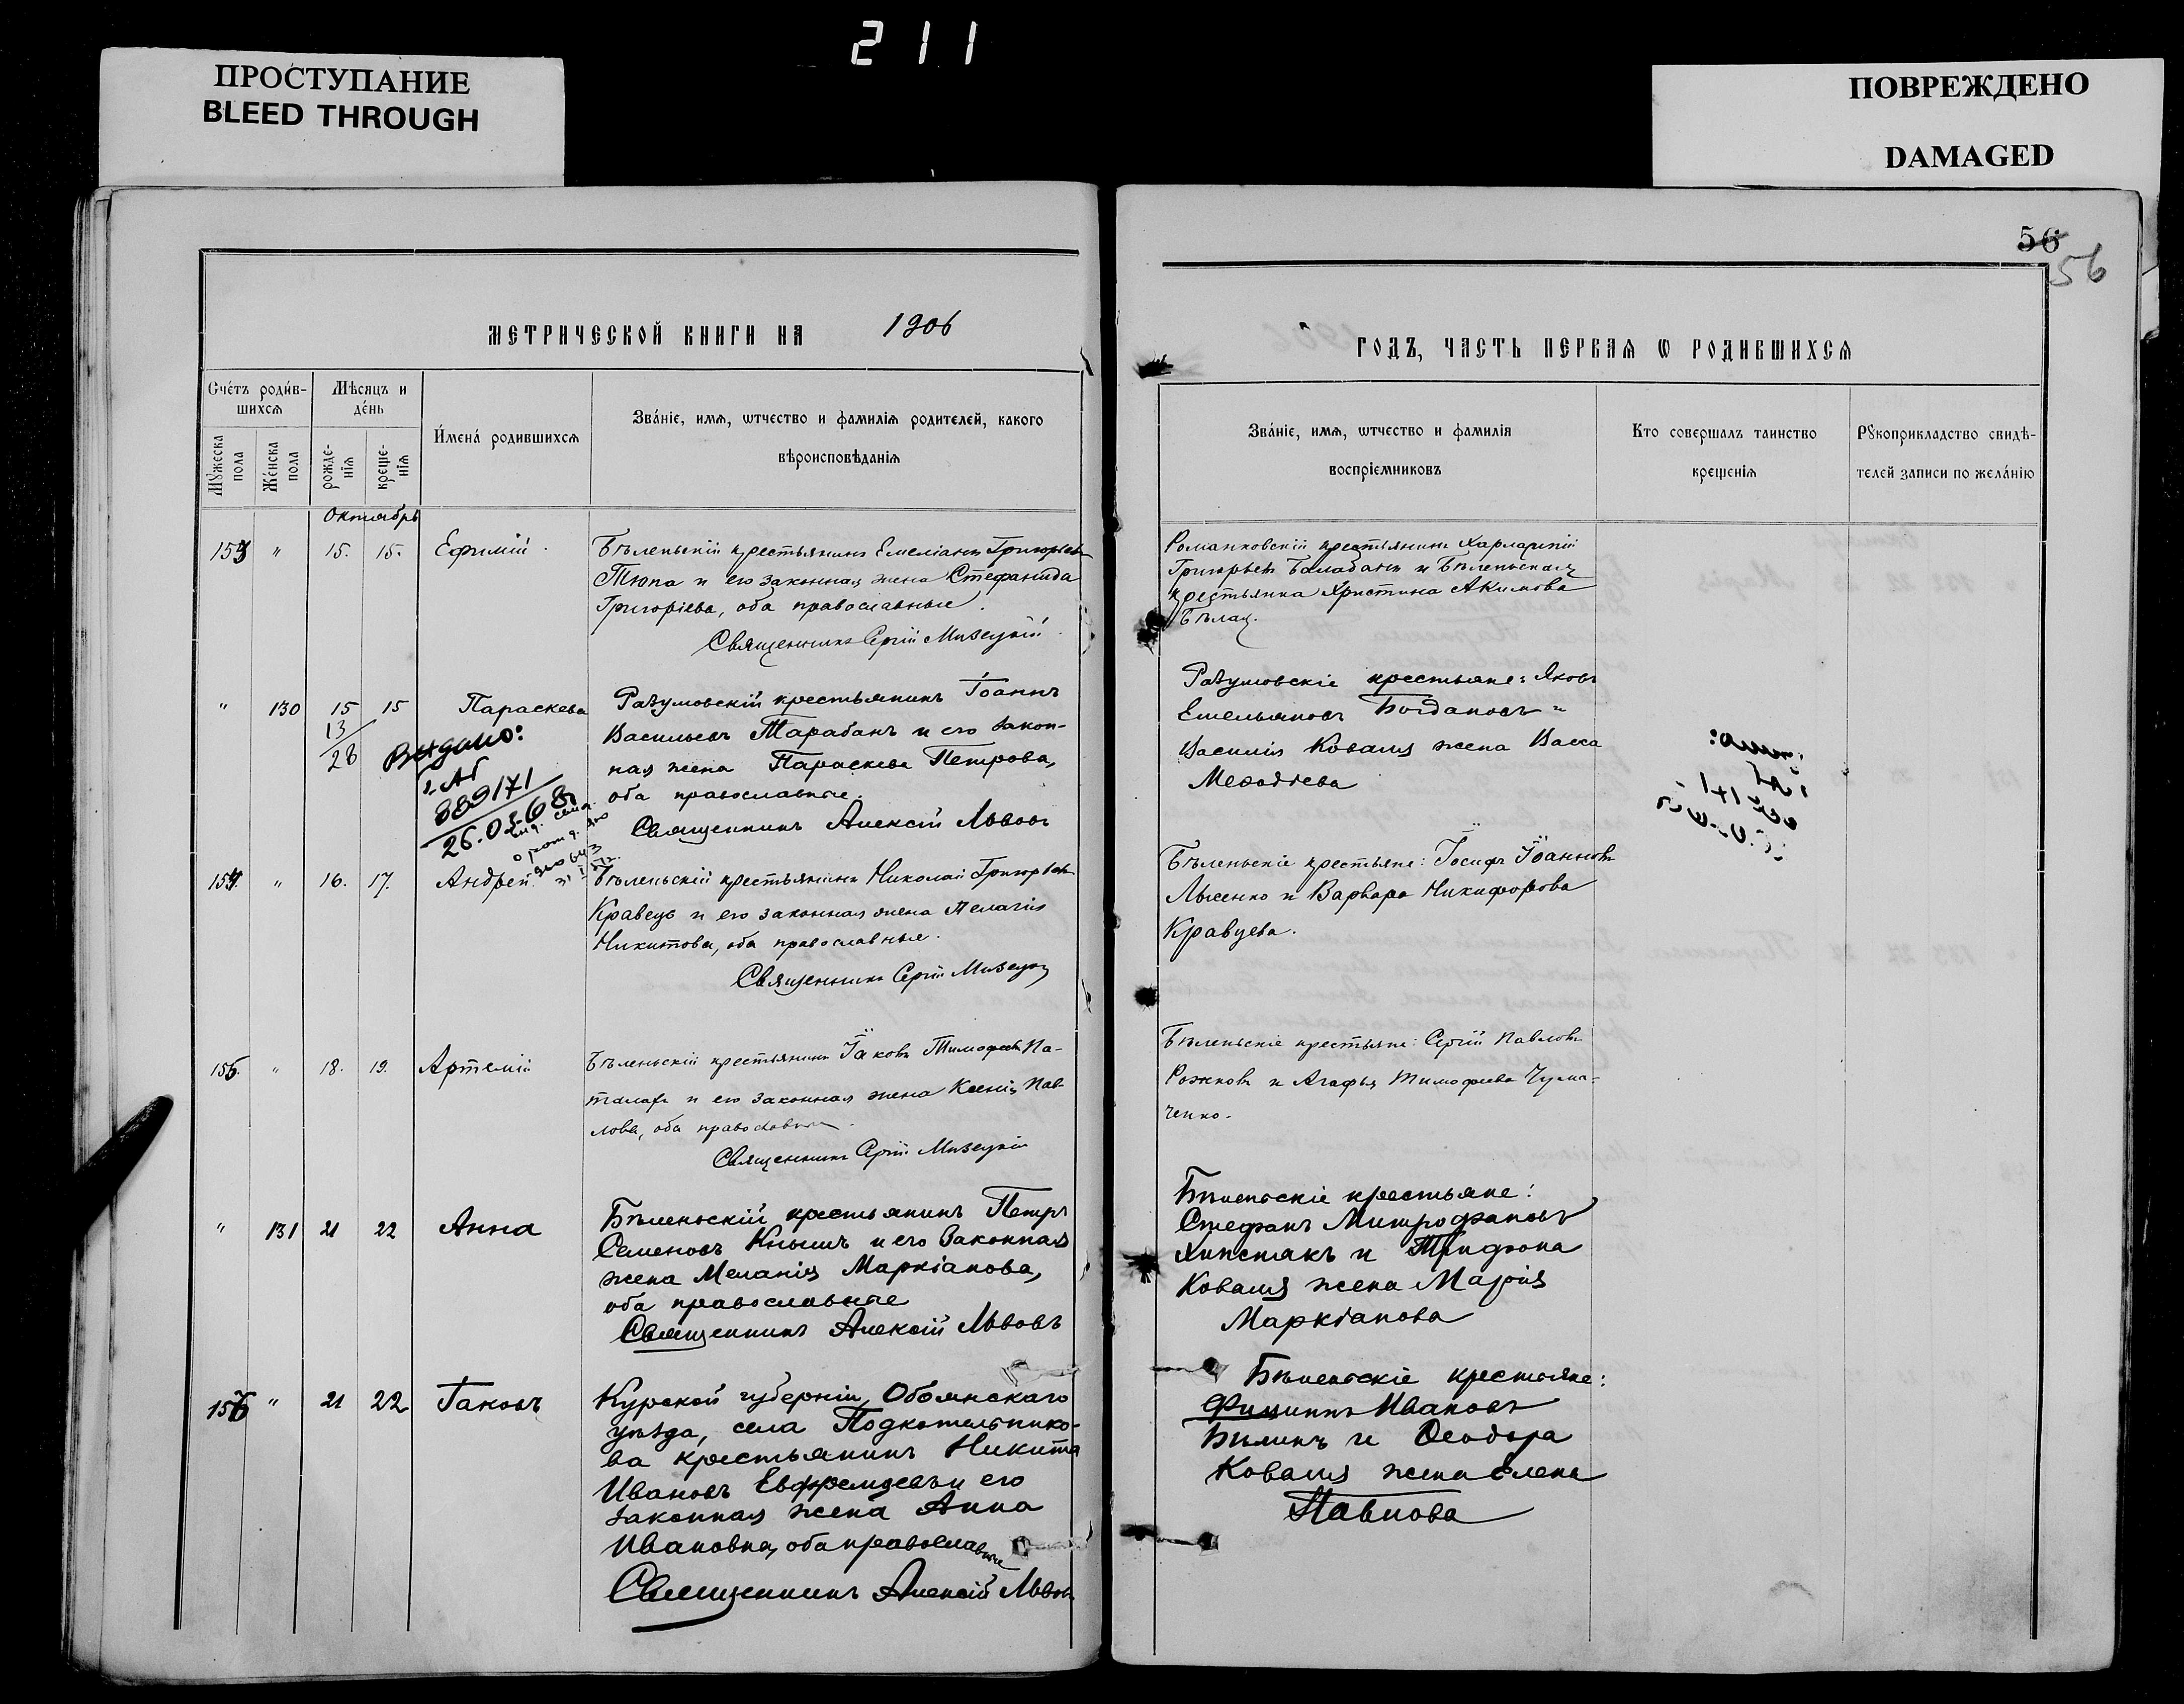 211
ПРОСТУПАНИЕ
BLEED THROUGH
ПОВРЕЖДЕНО
DAMAGED
56
56
МЕТРИЧЕСКОЙ КНИГИ НА 1906
ГОДЪ, ЧАСТЬ ПЕРВАѦ Ѡ РОДИВШИХСѦ
Счéтъ роди́в-
шихсѧ
Мꙋ́жеска
пола
Жéнска
пола
Мѣ́сяцъ и
дéнь
рождé-
нїѧ
крещé-
нїѧ
И́мена́ родившихсѧ
Зва́нїе, имѧ, ѡтчество и фамилїѧ родителей, какого
вѣроисповѣданїѧ
Зва́нїе, имѧ, ѡтчество и фамилїѧ
воспрїемниковъ
Кто совершалъ таинство
крещенїѧ
Рꙋкоприкладство свидѣ-
телей записи по жела́нїю
Октябрь
153 " 15. 15. Ефимій
Бѣленьскій крестьянинъ Емеліанъ Григорьевъ
Тюпа и его законная жена Стефанида
Григоріева, оба православные.
Священникъ Сергій Мизецкій
Романковскій крестьянинъ Харлампій
Григорьевъ Балабанъ и Бѣленьская
крестьянка Христина Акимова
Бѣлая.
" 130 15 15 Параскева
13/28
Разумовскій крестьянинъ Іоаннъ
Васильевъ Тарабанъ и его закон-
ная жена Параскева Петрова,
оба православные.
Священникъ Алексій Львовъ
Разумовскіе крестьяне: Яковъ
Емельяновъ Богдановъ и
Василія Коваля жена Васса
Меѳодіева
Выдано:
889171
26.03.68
154. " 16. 17. Андрей
Бѣленьскій крестьянинъ Николай Григорьевъ
Кравецъ и его законная жена Пелагія
Никитова, оба православные.
Священникъ Сергій Мизецкій
Бѣленьскіе крестьяне: Іосифъ Іоанновъ
Лысенко и Варвара Никифорова
Кравцева.
155. " 18. 19. Артемій
Бѣленьскій крестьянинъ Іаковъ Тимофеевъ Па-
талаха и его законная жена Ксенія Пав-
лова, оба православные.
Священникъ Сергій Мизецкій
Бѣленьскіе крестьяне: Сергій Павловъ
Рожковъ и Агафья Тимофеева Чума-
ченко.
" 131 21 22 Анна
Бѣленьскій крестьянинъ Петръ
Семеновъ Кнышъ и его законная
жена Меланія Маркіанова,
оба православные
Священникъ Алексій Львовъ
Бѣленьскіе крестьяне:
Стефанъ Митрофановъ
и Трифона
Коваля жена Марія
Маркіанова
156 " 21 22 Іаковъ
Курской губерніи, Обоянскаго
уѣзда, села Подкотельнико-
ва крестьянинъ Никита
Ивановъ и его
законная жена Анна
Ивановна, оба православные
Священникъ Алексій Львовъ
Бѣленьскіе крестьяне:
Филиппъ Ивановъ
Бѣликъ и Ѳеодора
Коваля жена Елена
Павлова